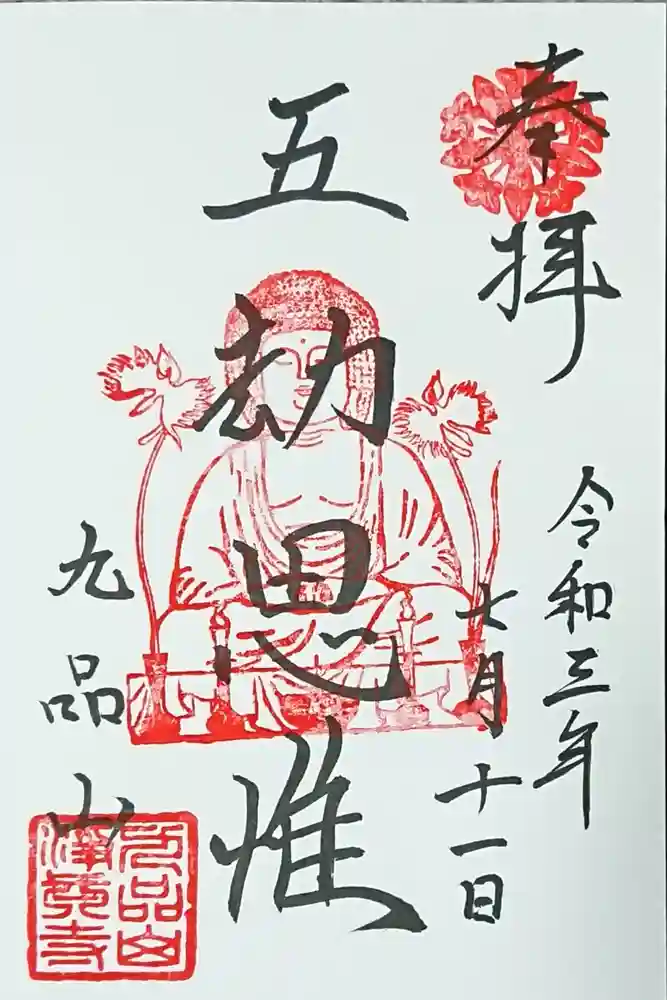 奉拝
令和三年
七月十一日
五劫思惟
九品山
九品山
浄真寺